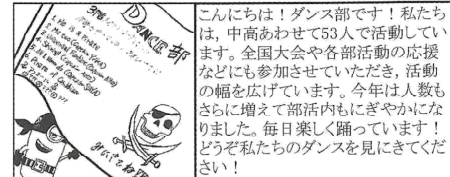 DANCE部
1. He is a Pirate
こんにちは！ダンス部です！私たち
は，中高あわせて53人で活動してい
ます。全国大会や各部活動の応援
などにも参加させていただき，活動
の幅を広げています。今年は人数も
さらに増えて部活内もにぎやかにな
りました。毎日楽しく踊っています！
どうぞ私たちのダンスを見にきてくだ
さい！